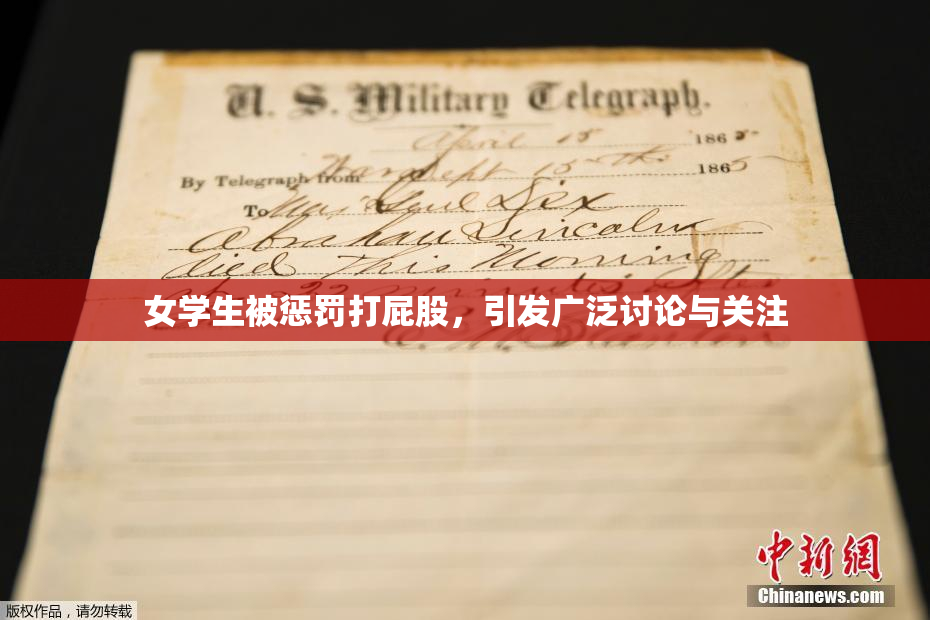 U. S. Military Telegraph.
April 15 1865
By Telegraph from War Dept 15th 1865
To Maj Genl Dix
Abraham Lincoln
died This Morning
at 22 minutes after
女学生被惩罚打屁股，引发广泛讨论与关注
中新网
Chinanews.com
版权作品，请勿转载